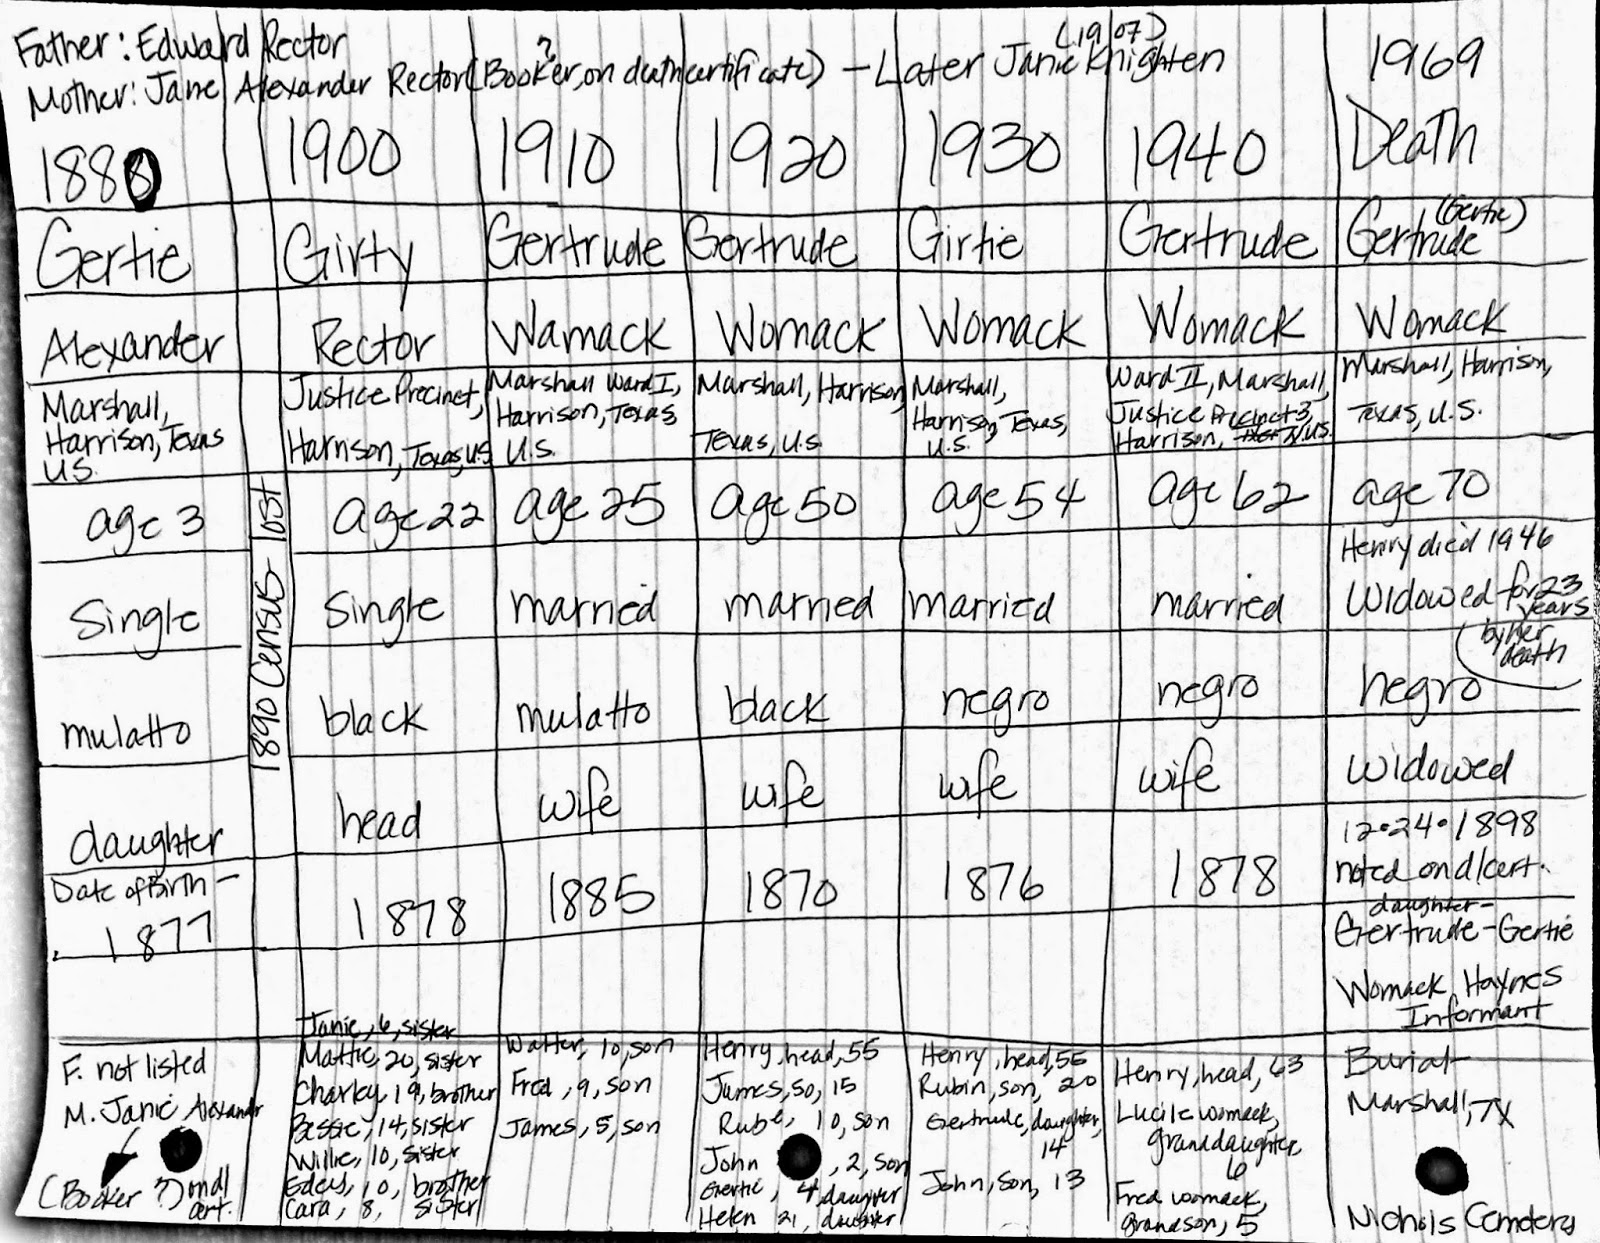 Father: Edward Rector
Mother: Jane Alexander Rector (Booker, on death certificate) - Later Janie Knighten
?
(1907)
1969
1880
1900
1910
1920
1930
1940
Death
Gertie
Girty
Gertrude
Gertrude
Girtie
Gertrude
Gertrude (Gertie)
Alexander
Rector
Wamack
Womack
Womack
Womack
Womack
Marshall,
Harrison, Texas
U.S.
Justice Precinct,
Harrison, Texas, U.S.
Marshall Ward I,
Harrison, Texas
U.S.
Marshall, Harrison,
Texas, U.S.
Marshall,
Harrison, Texas,
U.S.
Ward II, Marshall,
Justice Precinct 3,
Harrison, U.S.
Marshall, Harrison,
Texas, U.S.
1890 Census - lost
age 3
age 22
age 25
age 50
age 54
age 62
age 70
Henry died 1946
Single
Single
married
married
married
married
Widowed for 23
years
by her
death
mulatto
black
mulatto
black
negro
negro
negro
daughter
head
wife
wife
wife
wife
widowed
Date of Birth -
1877
1878
1885
1870
1876
1878
12.24.1898
noted on d/cert.
daughter -
Gertrude - Gertie
Womack Haynes
Informant
F. not listed
M. Janie Alexander
(Booker ?) on d/
cert.
Janie, 6, sister
Mattie, 20, sister
Charley, 19, brother
Bessie, 14, sister
Willie, 10, sister
10, brother
Cara, 8, sister
Walter, 10, son
Fred, 9, son
James, 5, son
Henry, head, 55
James, so, 15
Rube, 10, son
John , 2, son
Gertie, 4, daughter
Helen 21, daughter
Henry, head, 55
Rubin, son, 20
Gertrude, daughter,
14
John, son, 13
Henry, head, 63
Lucile Womack,
granddaughter,
6
Fred Womack,
grandson, 5
Burial-
Marshall, TX
Nichols Cemetery